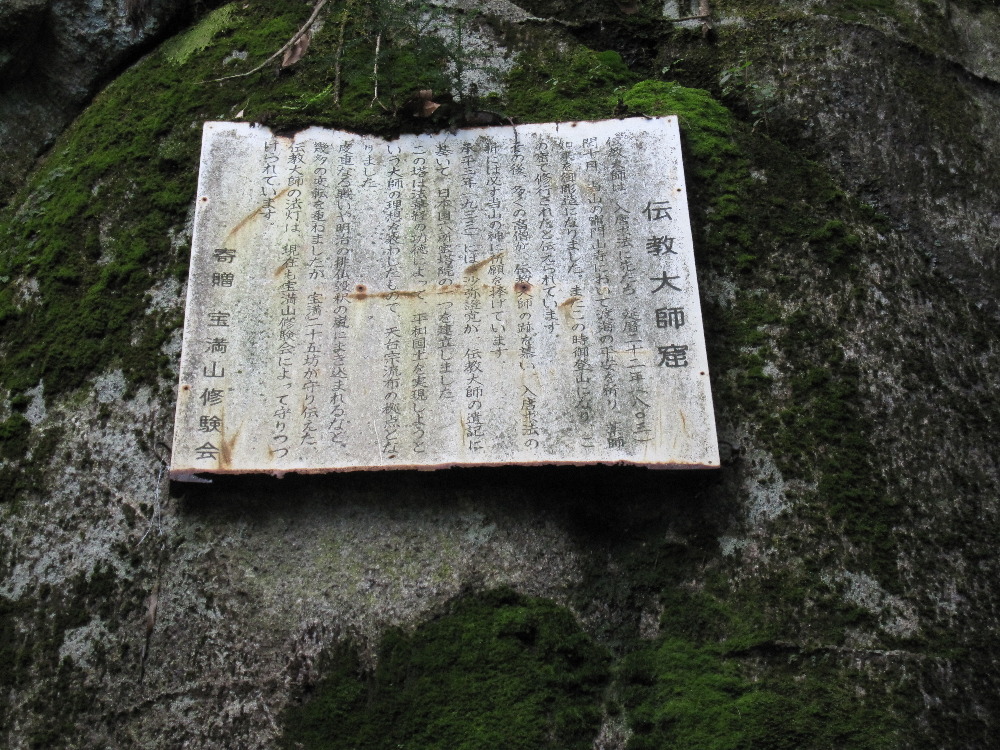 伝教大師窟
伝教大師は、入唐求法に先だち、延暦二十二年(八〇三)
閏十月、当山の竈門山寺において渡海の平安を祈り、薬師
如来を御彫造になりました。またこの時御登山になり、こ
の窟で修行されたと伝えられています。
その後、多くの高僧が、伝教大師の跡を慕い、入唐求法の
折には必ず当山の神に祈願を捧げています。
承平三年(九三三)には、沙弥證覚が、伝教大師の遺記に
基いて、日本国六所宝塔院の一つを建立しました。
この塔は法華経の功徳によって、平和国土を実現しようと
いう大師の理想を表わしたもので、天台宗流布の拠点とな
りました。
度重なる戦いや明治の排仏毀釈の嵐にまき込まれるなど、
幾多の変転を重ねましたが、宝満二十五坊が守り伝えた、
伝教大師の法灯は、現在も宝満山修験会によって守りつづ
けられています。
寄贈 宝満山修験会